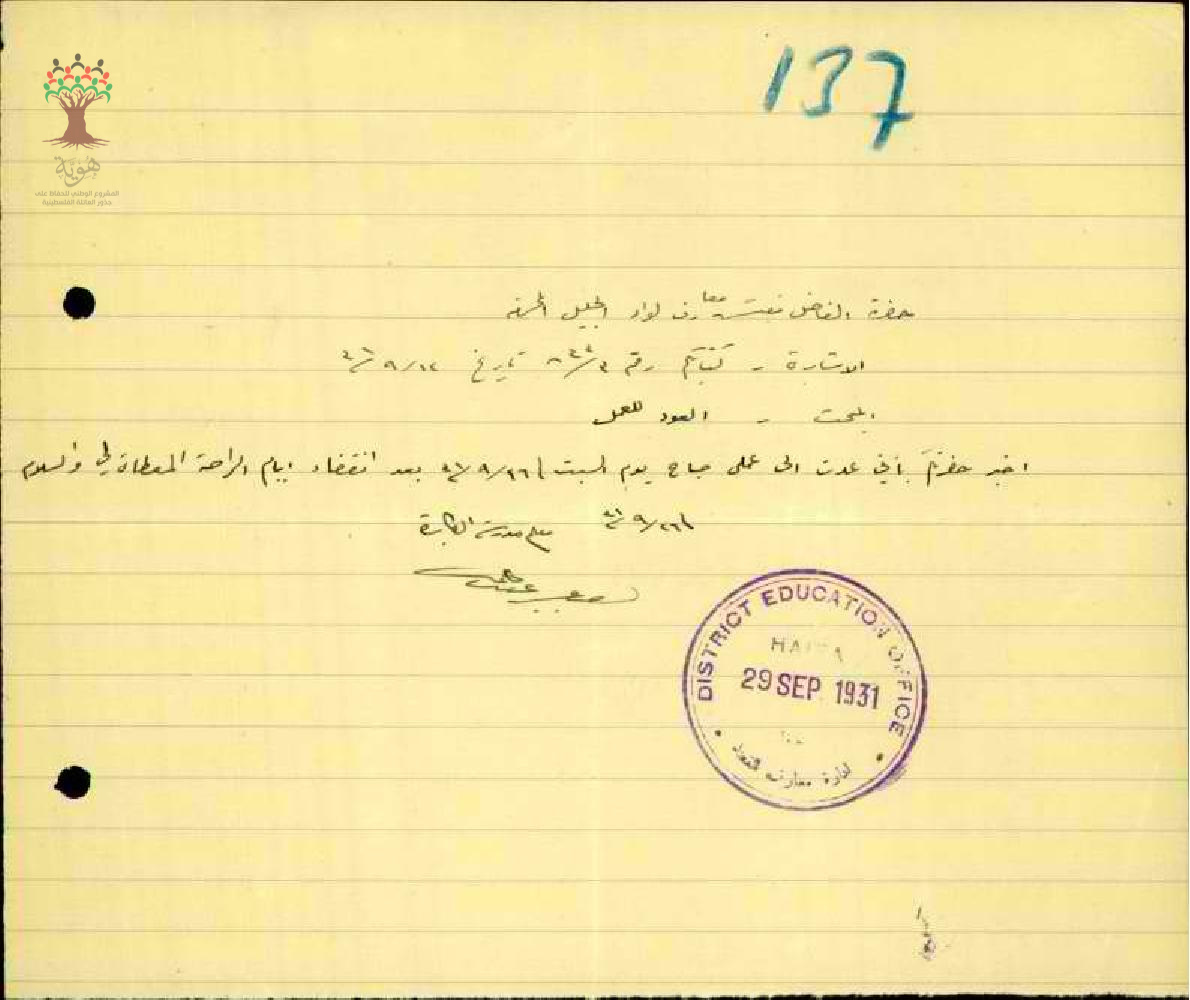 137
هُوِيَّة
المشروع الوطني للحفاظ على
جذور العائلة الفلسطينية
حضرة الفاضل مفتش معارف لواء الجليل المحترم
الاشارة - كتابكم رقم تاريخ
البحث - العود للعمل
اخبر حضرتكم بأني عدت الى عملي صباح يوم السبت ٢٦/٩/٣١ بعد انقضاء ايام الراحة المعطاة لي والسلام
٢٦/٩/٣١
معلم مدرسة
DISTRICT EDUCATION OFFICE
HAIFA
29 SEP 1931
ادارة معارف